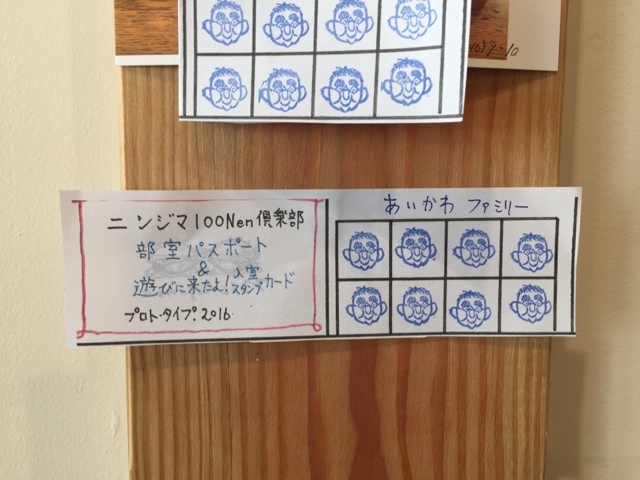 ニンジマ100Nen倶楽部
部室パスポート
&
遊びに来たよ!入室スタンプカード
プロト・タイプ.2016
あいかわ ファミリー